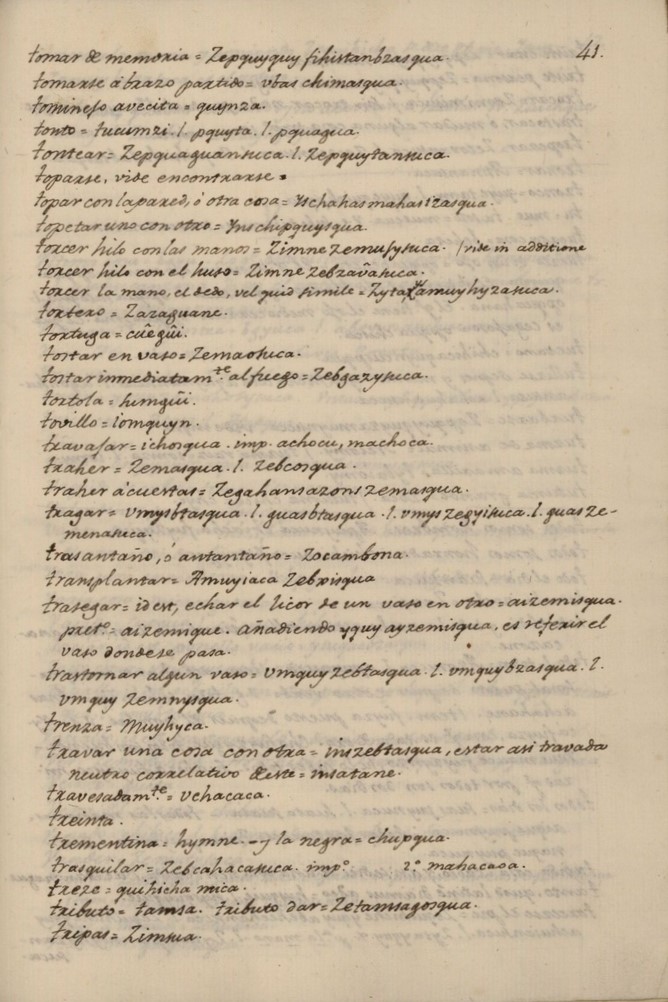 41.
tomar de memoria = Zepquyquy fihistanbzasqua.
tomarse á brazo partido = vbas chimasqua.
tominejo avecita = quynza.
tonto = tucumzi. l. pquyta. l. pquagua.
tontear = Zepquaguansuca. l. Zepquytansuca.
toparse, vide encontrarse =
topar con la pared, ó otra cosa = yschahasmahasizasqua.
topetar uno con otro = yns chipquysqua.
torcer hilo con las manos = Zimne zemusysuca. / vide in additione
torcer hilo con el huso = Zimne zebzaũasuca.
torcer la mano, el dedo, vel quid simile = Zyta amuyhyzasuca.
tortero = Zazaguane.
tortuga = cuẽgũi.
tostar en vaso = Zemaosuca.
tostar inmediatam.te al fuego = Zebgazysuca.
tortola = sumgũi.
tovillo = iomquyn.
travajar = ichosqua. imp. achocu, machoca.
traher = Zemasqua. l. zebcosqua.
traher á cuestas = Zegahansazons zemasqua.
tragar = vmysbtasqua. l. guasbtasqua. l. vmys zegyisuca. l. guas ze-
menasuca.
trasantaño, ó antantaño = Zocambona.
transplantar = Amuyiaca Zebxisqua
trasegar = id est, echar el licor de un vaso en otro = aizemisqua.
pret.o = aizemique. añadiendo yquy ayzemisqua, es referir el
vaso donde se pasa.
trastornar algun vaso = vmquy zebtasqua. l. vmquy bzasqua. l.
vmquy zemnysqua.
trenza = Muyhyca.
travar una cosa con otra = inszebtasqua, estar asi travada
neutro correlativo deeste = insatane.
travesadam.te = vchacaca.
treinta.
trementina = hymne. -- y la negra = chupqua.
trasquilar = Zebcahacasuca. imp.o 2.o mahacaoa.
treze = quihicha mica.
tributo = tamsa. tributo dar = Zetamsagosqua.
tripas = Zimsua.